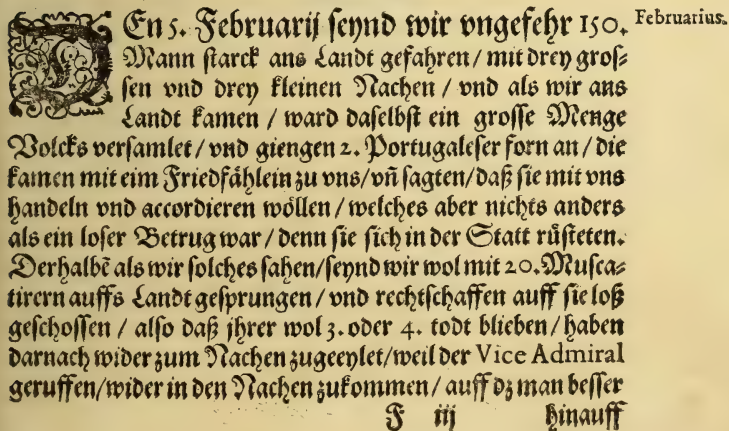 DEn 5. Februarij seynd wir vngefehr 150. Februarius.
Mann starck ans Landt gefahren / mit drey gros⸗
sen vnd drey kleinen Nachen / vnd als wir ans
Landt kamen / ward daselbst ein grosse Menge
Volcks versamlet / vnd giengen 2. Portugaleser forn an / die
kamen mit eim Friedfählein zu vns / vñ sagten / daß sie mit vns
handeln vnd accordieren wöllen / welches aber nichts anders
als ein loser Betrug war / denn sie sich in der Statt rüsteten.
Derhalbē als wir solches sahen / seynd wir wol mit 20. Musca⸗
tirern auffs Landt gesprungen / vnd rechtschaffen auff sie loß
geschossen / also daß jhrer wol 3. oder 4. todt blieben / haben
darnach wider zum Nachen zugeeylet / weil der Vice Admiral
geruffen / wider in den Nachen zukommen / auff dz man besser
F iij hinauff